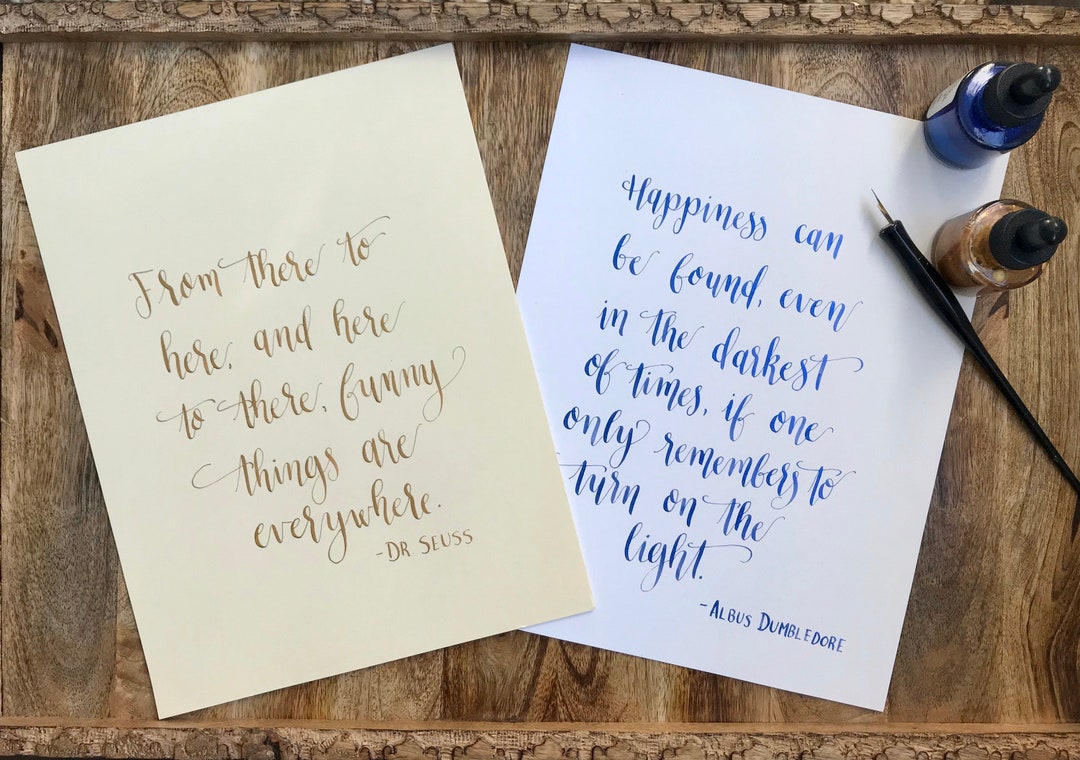 From there to
here, and here
to there, funny
things are
everywhere.
-DR SEUSS
Happiness can
be found, even
in the darkest
of times, if one
only remembers to
turn on the
light.
-ALBUS DUMBLEDORE